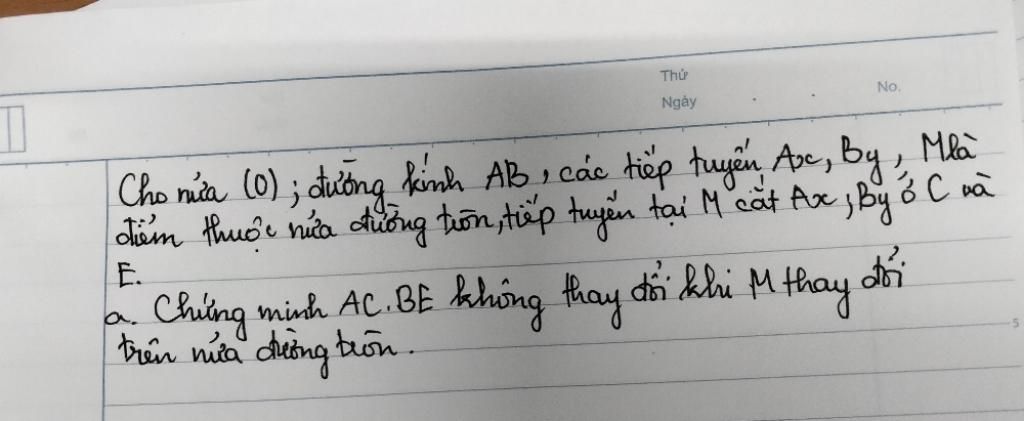 Thứ
Ngày . . No.
Cho nửa (O); đường kính AB, các tiếp tuyến Ax, By, M là
điểm thuộc nửa đường tròn, tiếp tuyến tại M cắt Ax, By ở C và
E.
a. Chứng minh AC.BE không thay đổi khi M thay đổi
trên nửa đường tròn.
5